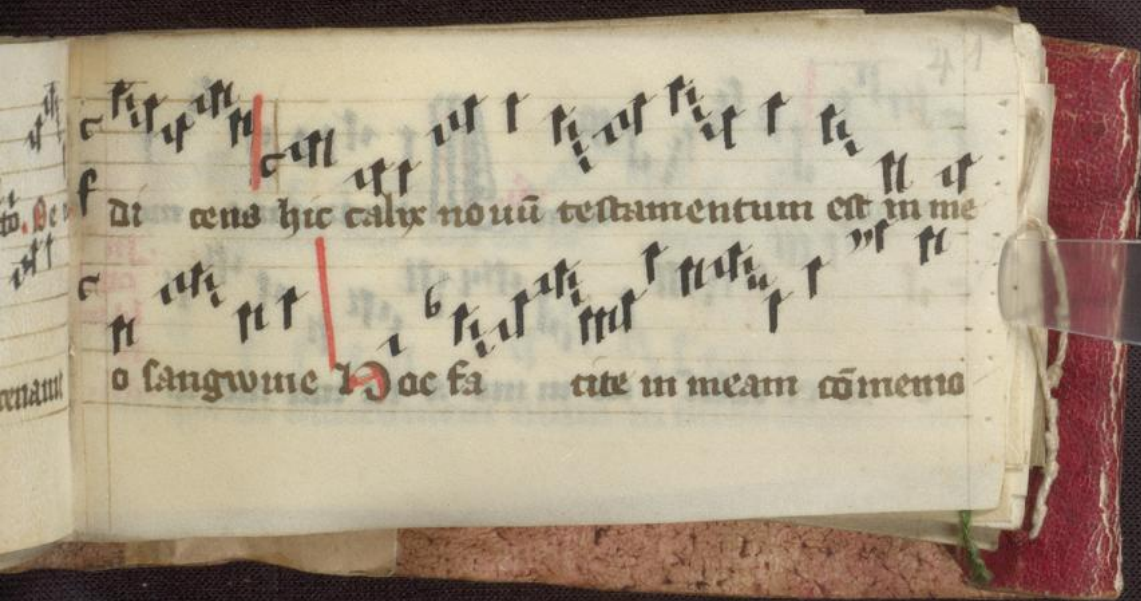 di cens hic calix nouū testamentum est in me
o sangwine Hoc fa cite in meam cōmemo